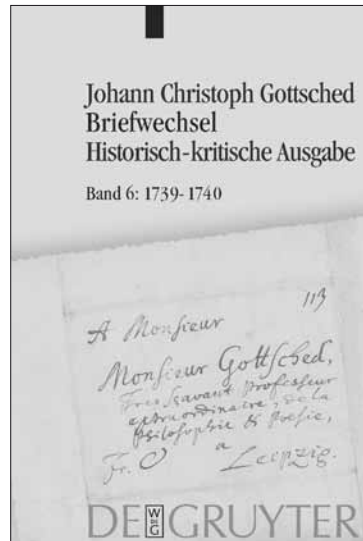 Johann Christoph Gottsched
Briefwechsel
Historisch-kritische Ausgabe
Band 6: 1739-1740
113
A Monsieur
Monsieur Gottsched,
Tres scavant Professeur
extraordinaire, de la
Philosophie & Poesie,
a
Fr. Leipzig.
DE GRUYTER